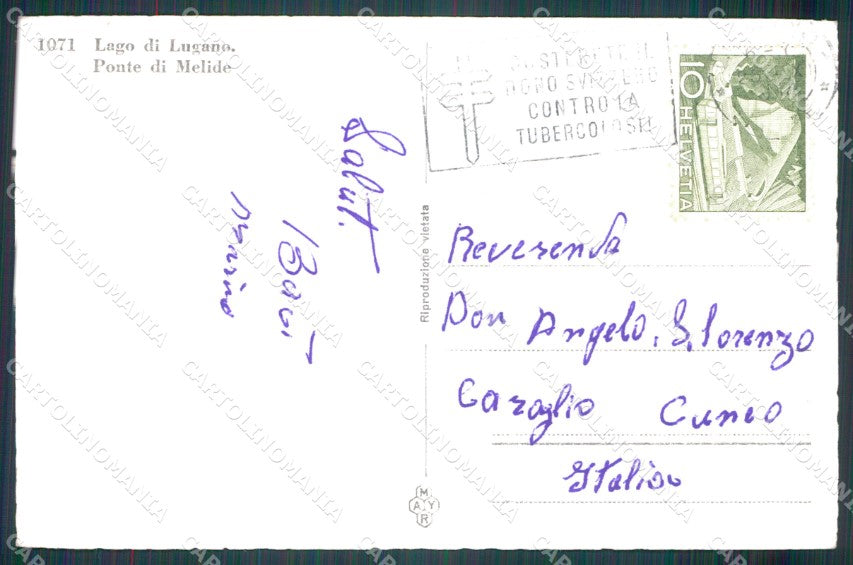 1071 Lago di Lugano.
Ponte di Melide
CONTRO LA
TUBERCOLOSI
10 HELVETIA
Salut.
Riproduzione vietata
Reverendo
Don Angelo. S. Lorenzo
Caraglio Cuneo
Italia
MAYR
CARTOLINOMANIA